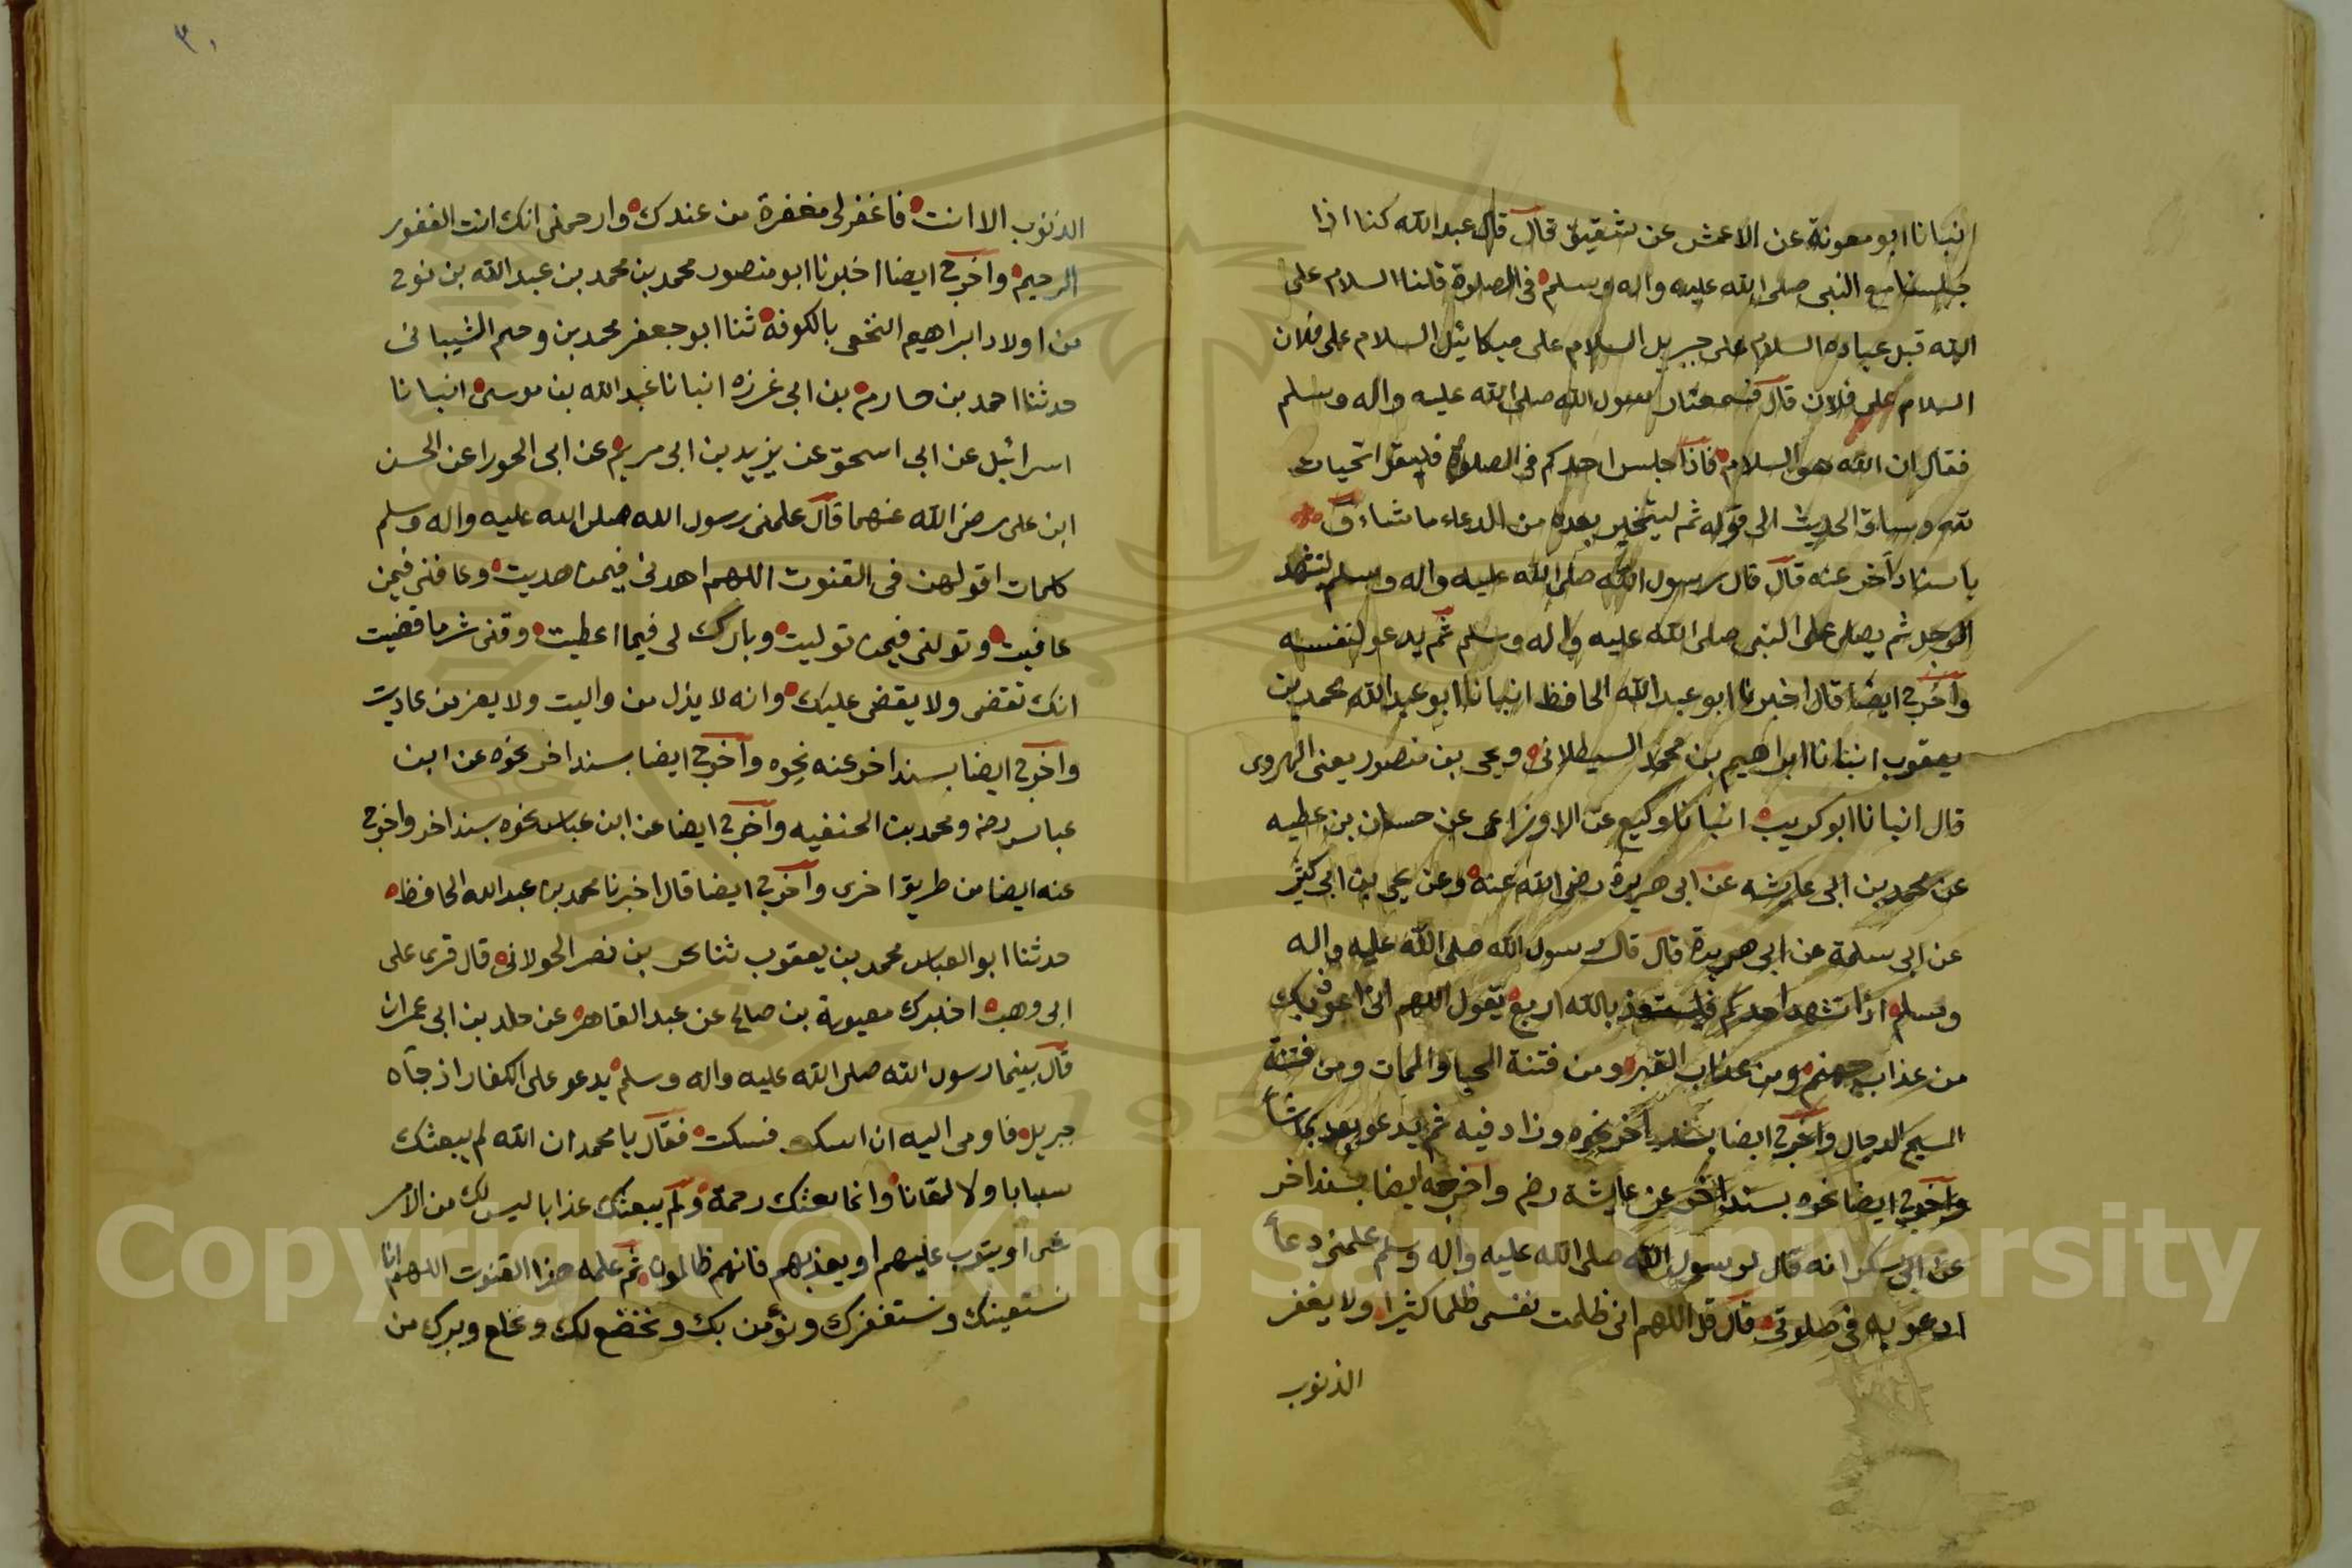 انبانا ابو معوية عن الاعمش عن شقيق قال قال عبد الله كنا اذا
جلسنا مع النبى صلى الله عليه واله وسلم فى الصلوة قلنا السلام على
الله قبل عباده السلام على جبريل السلام على ميكائيل السلام على فلان
السلام على فلان قال فسمعنا رسول الله صلى الله عليه واله وسلم
فقال ان الله هو السلام فاذا جلس احدكم فى الصلوة فليقل التحيات
لله وساق الحديث الى قوله ثم ليتخير بعده من الدعاء ما شاء
باسناد آخر عنه قال قال رسول الله صلى الله عليه واله وسلم ليتشهد
الرجل ثم يصلى على النبى صلى الله عليه واله وسلم ثم يدعو لنفسه
واخرج ايضا قال اخبرنا ابو عبد الله الحافظ انبانا ابو عبد الله محمد بن
يعقوب انبانا ابراهيم بن محمد السيطلانى ويحى بن منصور يعنى الهروى
قال انبانا ابو كريب انبانا وكيع عن الاوزاعى عن حسان بن عطيه
عن محمد بن ابى عايشه عن ابى هريرة رضى الله عنه وعن يحى بن ابى كثير
عن ابى سلمة عن ابى هريرة قال قال رسول الله صلى الله عليه واله
وسلم اذا تشهد احدكم فليستعذ بالله اربع يقول اللهم انى اعوذ بك
من عذاب جهنم ومن عذاب القبر ومن فتنة المحيا والممات ومن فتنة
المسيح الدجال واخرج ايضا بسند آخر نحوه وزاد فيه ثم يدعو بعد بما شاء
واخرج ايضا نحوه بسند اخر عن عايشة رضه واخرجه ايضا بسند اخر
عن ابى بكر انه قال لرسول الله صلى الله عليه واله وسلم علمنى دعاء
ادعو به فى صلوتى قال قل اللهم انى ظلمت نفسى ظلما كثيرا ولا يغفر
الذنوب
٣٠
الذنوب الا انت فاغفر لى مغفرة من عندك وارحمنى انك انت الغفور
الرحيم واخرج ايضا اخبرنا ابو منصور محمد بن محمد بن عبد الله بن نوح
من اولاد ابراهيم النخعى بالكوفة ثنا ابو جعفر محمد بن وحيم الشيبانى
حدثنا احمد بن حازم بن ابى غرزه انبانا عبد الله بن موسى انبانا
اسرائيل عن ابى اسحق عن يزيد بن ابى مريم عن ابى الحورا عن الحسن
ابن على رضى الله عنهما قال علمنى رسول الله صلى الله عليه واله وسلم
كلمات اقولهن فى القنوت اللهم اهدنى فيمن هديت وعافنى فيمن
عافيت وتولنى فيمن توليت وبارك لى فيما اعطيت وقنى شر ما قضيت
انك تقضى ولا يقضى عليك وانه لا يذل من واليت ولا يعز من عاديت
واخرج ايضا بسند اخر عنه نحوه واخرج ايضا بسند اخر نحوه عن ابن
عباس رضه ومحمد بن الحنفيه واخرج ايضا عن ابن عباس نحوه بسند اخر واخرج
عنه ايضا من طريق اخرى واخرج ايضا قال اخبرنا محمد بن عبد الله الحافظ
حدثنا ابو العباس محمد بن يعقوب ثنا بحر بن نصر الخولانى قال قرى على
ابى وهب اخبرك معيوية بن صالح عن عبد القاهر عن خلد بن ابى عمران
قال بينما رسول الله صلى الله عليه واله وسلم يدعو على الكفار اذ جآه
جبريل فاومى اليه ان اسكت فسكت فقال يا محمد ان الله لم يبعثك
سبابا ولا لعانا وانما بعثك رحمة ولم يبعثك عذابا ليس لك من الامر
شى او يتوب عليهم او يعذبهم فانهم ظالمون ثم علمه هذا القنوت اللهم انا
نستعينك ونستغفرك ونؤمن بك ونخضع لك ونخلع وبترك من
Copyright © King Saud University
1957